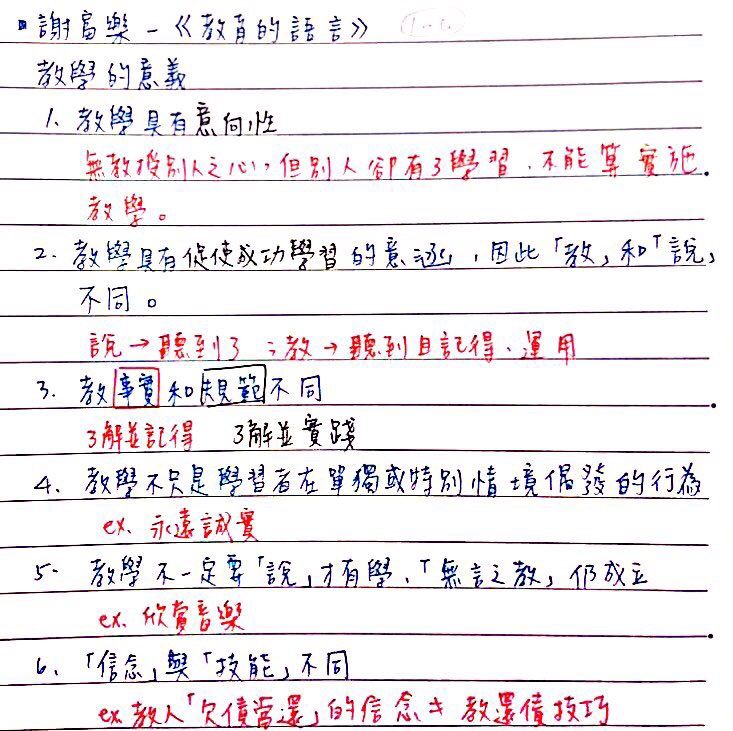 謝富樂-《教育的語言》
教學的意義
1. 教學具有意向性
無教授別人之心,但別人卻有了學習,不能算實施
教學。
2. 教學具有促使成功學習的意涵,因此「教」和「說」
不同。
說→聽到了;教→聽到且記得、運用
3. 教事實和規範不同
了解並記得 了解並實踐
4. 教學不只是學習者在單獨或特別情境偶發的行為
ex. 永遠誠實
5. 教學不一定要「說」才有學,「無言之教」仍成立
ex. 欣賞音樂
6. 「信念」與「技能」不同
ex. 教人「欠債當還」的信念≠教還債技巧